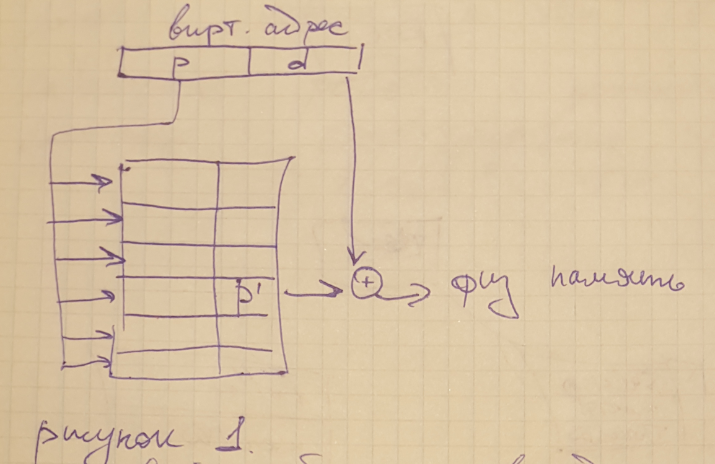 вирт. адрес
p d
p'
+
физ память
рисунок 1.